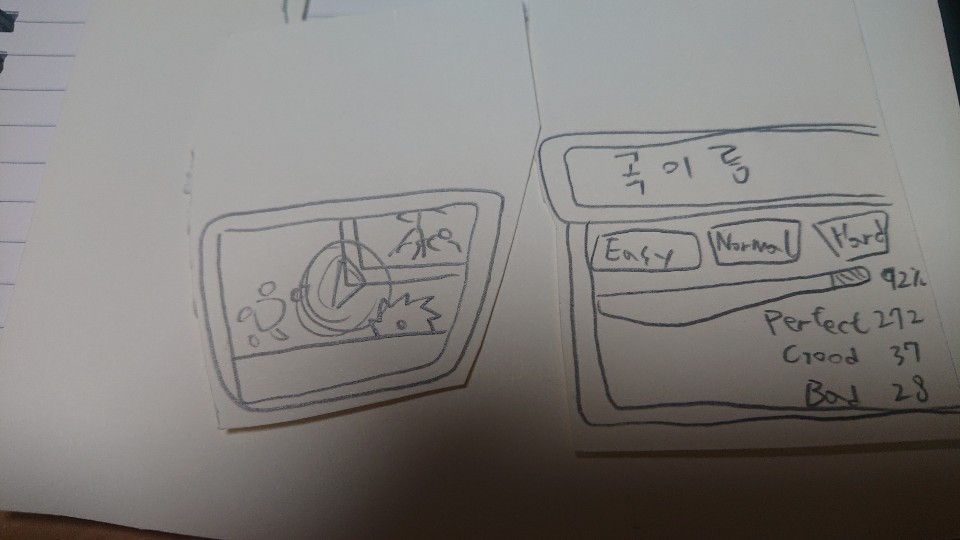 곡이름
Easy Normal Hard
92%
Perfect 272
Good 37
Bad 28